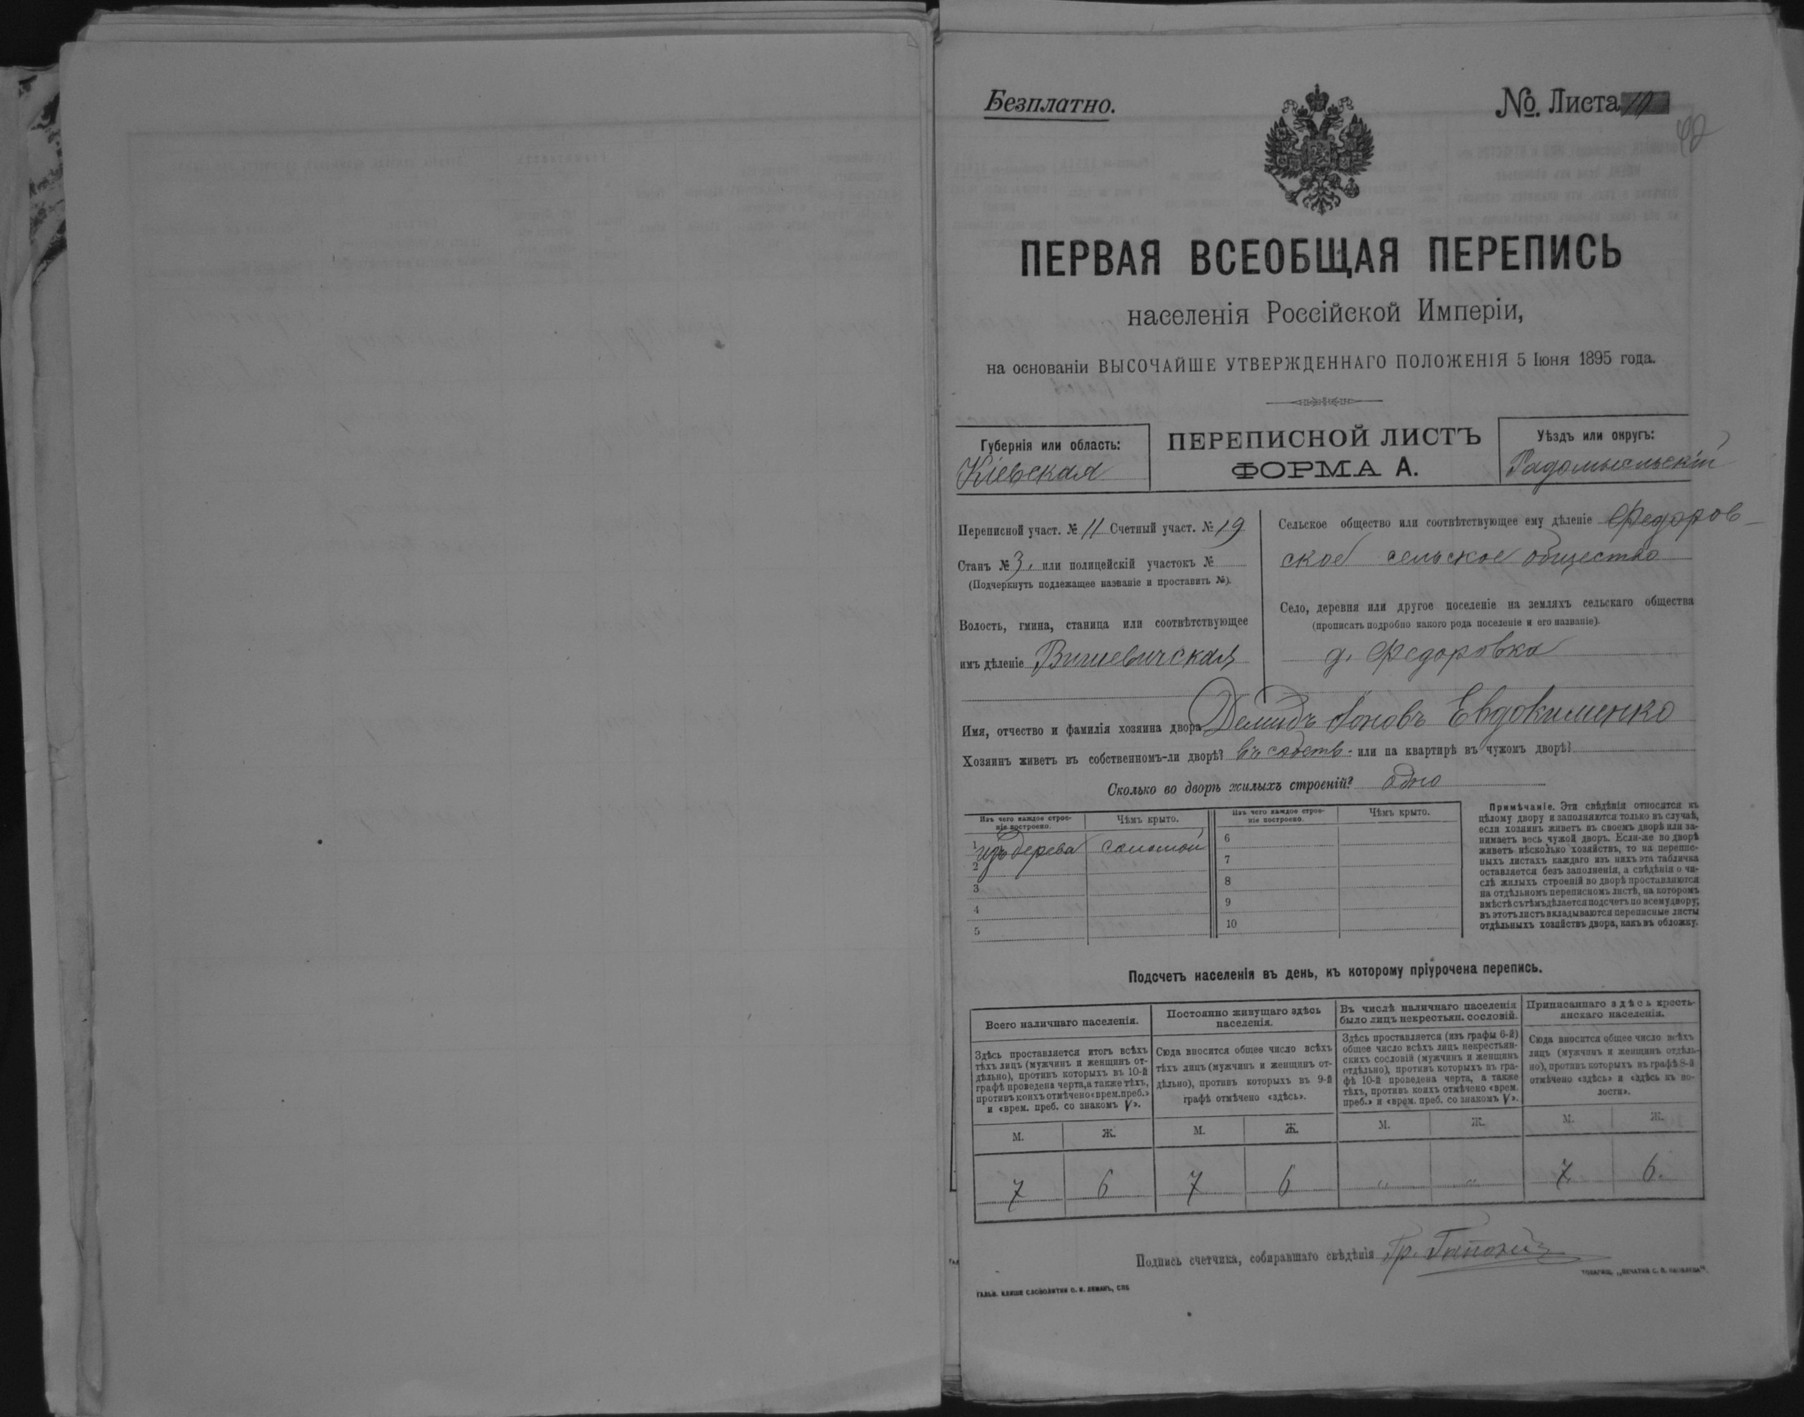 Безплатно.
No. Листа
ПЕРВАЯ ВСЕОБЩАЯ ПЕРЕПИСЬ
населенія Россійской Имперіи,
на основаніи ВЫСОЧАЙШЕ УТВЕРЖДЕННАГО ПОЛОЖЕНІЯ 5 Іюня 1895 года.
Губернія или область:
Кіевская
ПЕРЕПИСНОЙ ЛИСТЪ
ФОРМА А.
Уѣздъ или округъ:
Радомысльскій
Переписной участ. № 11 Счетный участ. № 19
Станъ № 3. или полицейскій участокъ №
(Подчеркнуть подлежащее названіе и проставить №).
Волость, гмина, станица или соотвѣтствующее
имъ дѣленіе Вишевичская
Сельское общество или соотвѣтствующее ему дѣленіе Федоров-
ское сельское общество
Село, деревня или другое поселеніе на земляхъ сельскаго общества
(прописать подробно какого рода поселеніе и его названіе).
д. Федоровка
Имя, отчество и фамилія хозяина двора Демидъ Евдокименко
Хозяинъ живетъ въ собственномъ-ли дворѣ? въ собств. или на квартирѣ въ чужомъ дворѣ?
Сколько во дворѣ жилыхъ строеній? одно
Изъ чего каждое строе-
ніе построено.
Чѣмъ крыто.
Изъ чего каждое строе-
ніе построено.
Чѣмъ крыто.
1 изъ дерева соломой
2
3
4
5
6
7
8
9
10
Примѣчаніе. Эти свѣдѣнія относятся къ
цѣлому двору и заполняются только въ случаѣ,
если хозяинъ живетъ въ своемъ дворѣ или за-
нимаетъ весь чужой дворъ. Если-же во дворѣ
живетъ нѣсколько хозяйствъ, то на перепис-
ныхъ листахъ каждаго изъ нихъ эта табличка
оставляется безъ заполненія, а свѣдѣнія о чи-
слѣ жилыхъ строеній во дворѣ проставляются
на отдѣльномъ переписномъ листѣ, на которомъ
вмѣстѣ съ тѣмъ дѣлается подсчетъ по всему двору;
въ этотъ листъ вкладываются переписные листы
отдѣльныхъ хозяйствъ двора, какъ въ обложку.
Подсчетъ населенія въ день, къ которому пріурочена перепись.
Всего наличнаго населенія.
Здѣсь проставляется итогъ всѣхъ
тѣхъ лицъ (мужчинъ и женщинъ от-
дѣльно), противъ которыхъ въ 10-й
графѣ проведена черта, а также тѣхъ,
противъ коихъ отмѣчено «врем. преб.»
и «врем. преб. со знакомъ V».
Постоянно живущаго здѣсь
населенія.
Сюда вносится общее число всѣхъ
тѣхъ лицъ (мужчинъ и женщинъ от-
дѣльно), противъ которыхъ въ 9-й
графѣ отмѣчено «здѣсь».
Въ числѣ наличнаго населенія
было лицъ некрестьян. сословій.
Здѣсь проставляется (изъ графы 6-й)
общее число всѣхъ лицъ некрестьян-
скихъ сословій (мужчинъ и женщинъ
отдѣльно), противъ которыхъ въ гра-
фѣ 10-й проведена черта, а также
тѣхъ, противъ коихъ отмѣчено «врем.
преб.» и «врем. преб. со знакомъ V».
Приписаннаго здѣсь кресть-
янскаго населенія.
Сюда вносится общее число всѣхъ
лицъ (мужчинъ и женщинъ отдѣль-
но), противъ которыхъ въ графѣ 8-й
отмѣчено «здѣсь» и «здѣсь въ во-
лости».
М. Ж. М. Ж. М. Ж. М. Ж.
7 6 7 6 „ „ 7 6.
Подпись счетчика, собиравшаго свѣдѣнія Гр.